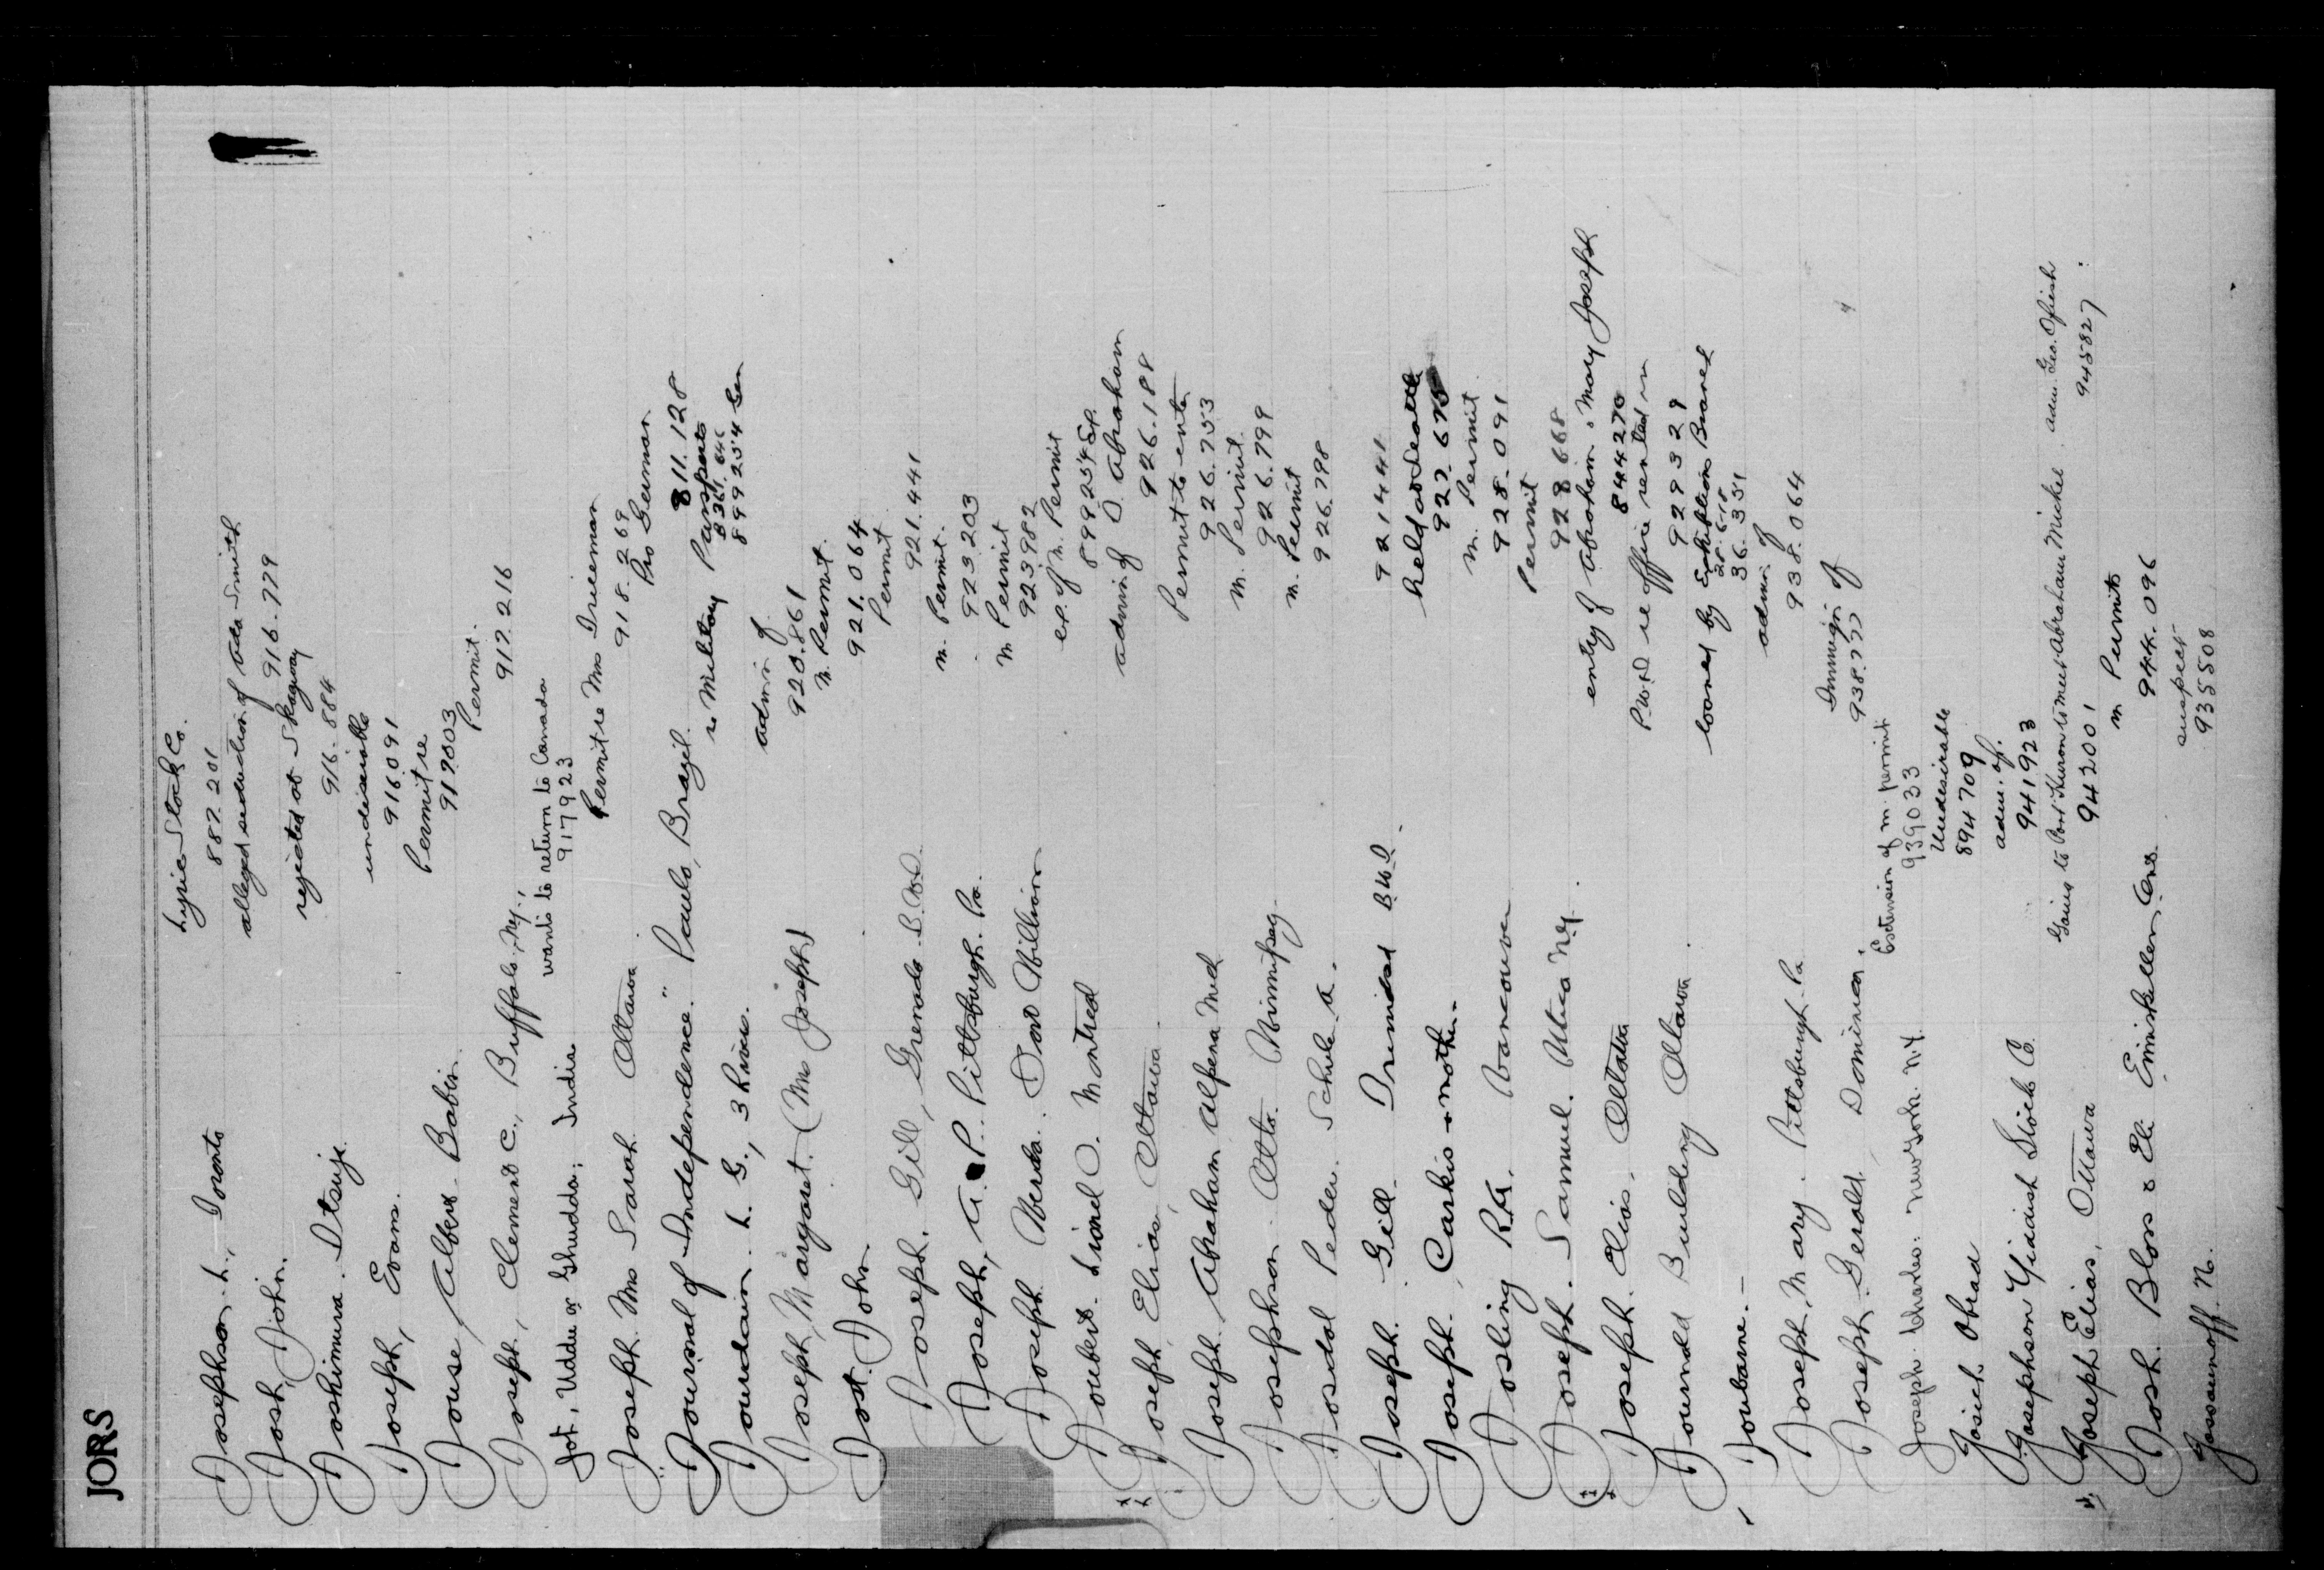 JORS
Josephson. L., Toronto Lyric Stock Co.
887.201
Josh, John. alleged seduction of Smith
916.779
Joshimura. Itsuji. rejected at Skagway
916.884
Joseph, Evans. undesirable
916091
Jouse, Albert Babin Permit re
917803
Joseph, Clement C., Buffalo, N.Y., Permit.
917.216
Jot, Uddu or Ghudda; India wants to return to Canada
917923
Joseph. Mrs Sarah Ottawa Permit re Mrs
918.269
Journal of Independence." Paulo, Brazil. Pro German
811.128
Jourdain. L. G., 3 Rivers. re Military Passports
8361.646
899254
Joseph, Margaret. (Mrs Joseph) admin of
920.861
Jost. John. m. Permit.
921.064
Joseph. Gill, Grenada B.W.I. Permit
921.441
Joseph, A. P. Pittsburgh. Pa. m. Permit.
923.203
Joseph. William m Permit
923.982
Joubert. Lionel O. Montreal ex. of m. Permit
899254
Joseph, Elias, Ottawa. admin of D. Abraham
926.188
Joseph, Abraham Alpena Mich Permit to enter
926.753
Josephson. Otto. Winnipeg m. Permit.
926.799
Josdal Peder. Schule A. m. Permit
926.798
Joseph. Gill. Trinidad B.W.I. 921441
Joseph. Carkis & mother. held at Seattle
927.675
Josling R.G. Vancouver m. Permit
928.091
Joseph. Samuel. Utica N.Y. Permit
928668
Joseph. Elias, Ottawa entry of Abraham & Mary Joseph
844270
Building Ottawa P.W.D re office rented in
929329
Joubarne. loaned by Exhibition Branch
36.351
Joseph, Mary. Pittsburgh Pa admin of
938.064
Joseph. Gerold, Dominica. Immign of
938.777
Joseph Charles. N.Y. Extension of m. permit
939033
Josich Obrad Undesirable
894709
Josephson Yiddish Stock Co. adm. of.
941923
Joseph Elias, Ottawa Going to Port Huron to meet Abraham Michel, adm. Geo. 945827
942001
Josh. Bloss & Eli Enniskillen, Ont. m Permits
944.096
Jossaumoff. N. suspect
935508